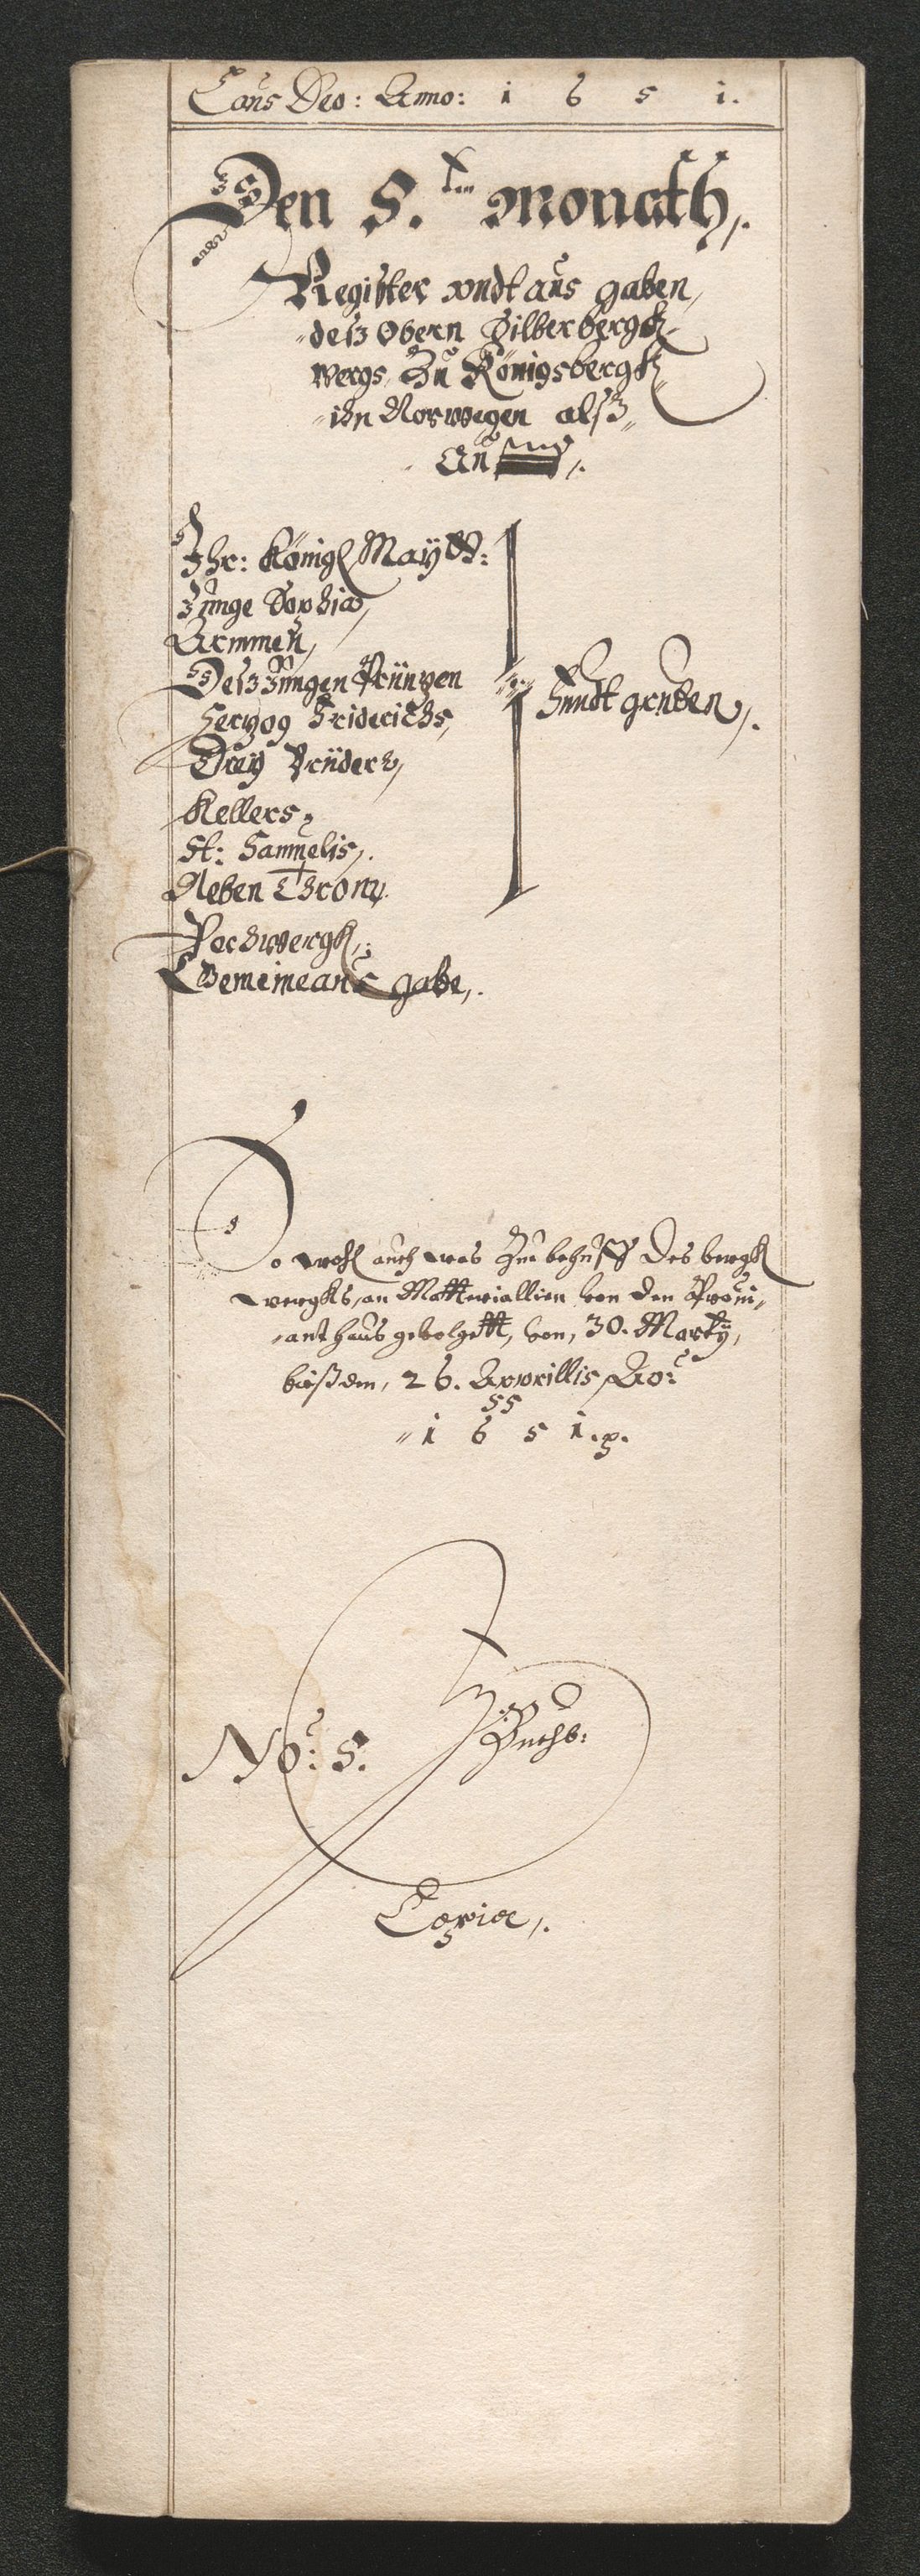 Laus Deo: Anno: 1 6 5 1.
Den 5.ten Monath,.
Register vndt aus gaben,
deß Obern Silberbergk
wergs, Zu Königsbergk
ihn Norwegen alß,
Au
Ihr: Königl Maytt:
Junge Sophia,
Armmen,
Deß Jungen Prüntzen
Hertzog Friderichs,
Drey Brüder,
Kellers,
St: Sammelis,.
Neben Throny
Fundt gruben,.
Pochwergk,:
Gemeineaus gabe,.
So wohl auch was Zue behuff des bergk
wergks, an Matteriallien von den Provi,
ant haus gevolgett, von, 30. Marty,
bießdem, 26. Apprillis Ao:
1 6 5 1.
No: 5.
Buchb:
Copia,.